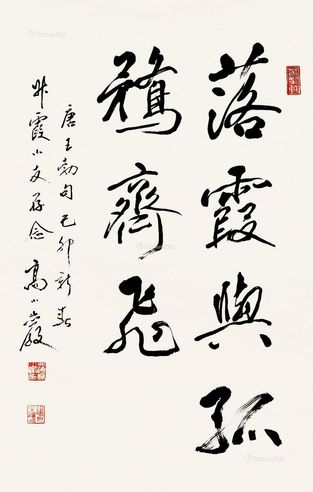 落霞與孤
鶩齊飛
唐王勃句己卯新春
升霞小友存念
高小巖